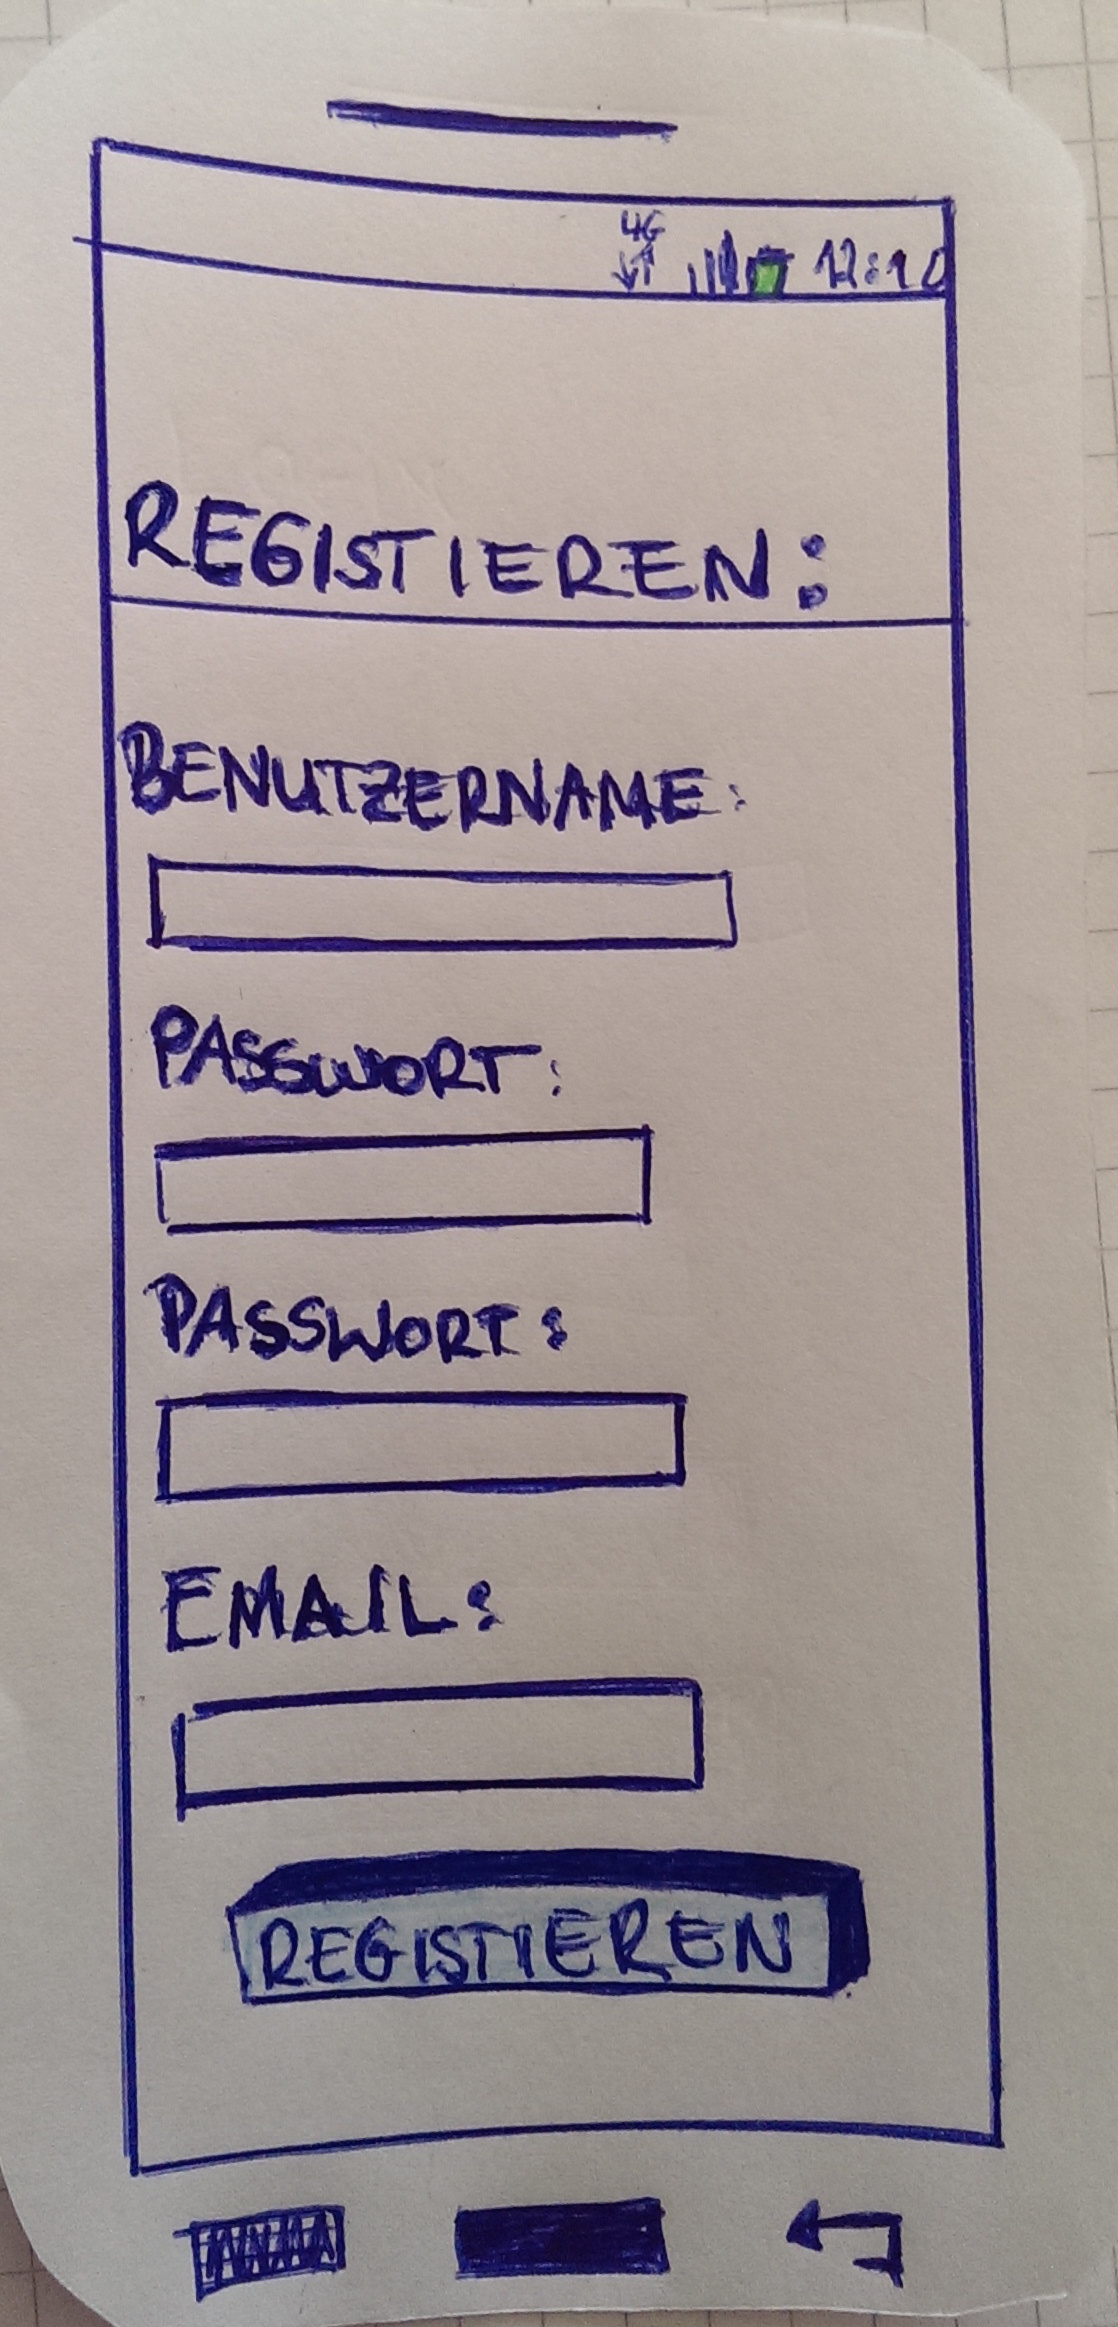 4G
12:10
REGISTIEREN:
BENUTZERNAME:
PASSWORT:
PASSWORT:
EMAIL:
REGISTIEREN